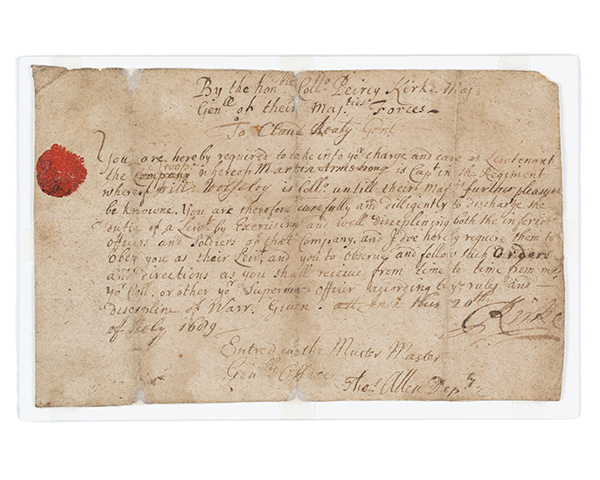 By the hon.ble Coll.o Peircy Kirke Maj.r
Gen.ll of their Maj.ties Forces
To Claud Beaty Gent
You are hereby required to take into yo.r charge and care as Lieutenant
the Company troop whereof Martin Armstrong is Capt.n in the Regiment
whereof Will Wolseley is Coll.o untill their Maj.ties further pleasure
be knowne. You are therefore carefully and dilligently to discharge the
duty of a Leiv.t by Exercising and well Disciplining both the inferior
officers and Soldiers of that Company, and I doe hereby require them to
obey you as their Leiv.t and you to observe and follow such Orders
and directions as you shall receive from time to time from me
yo.r Coll. or other yo.r Superior officer according to y.e rules and
Discipline of Warr. Given this 20th
of July 1689
Kirke
Entred in the Muster Master
Gen.lls Office
Tho.s Allen Dep.ty